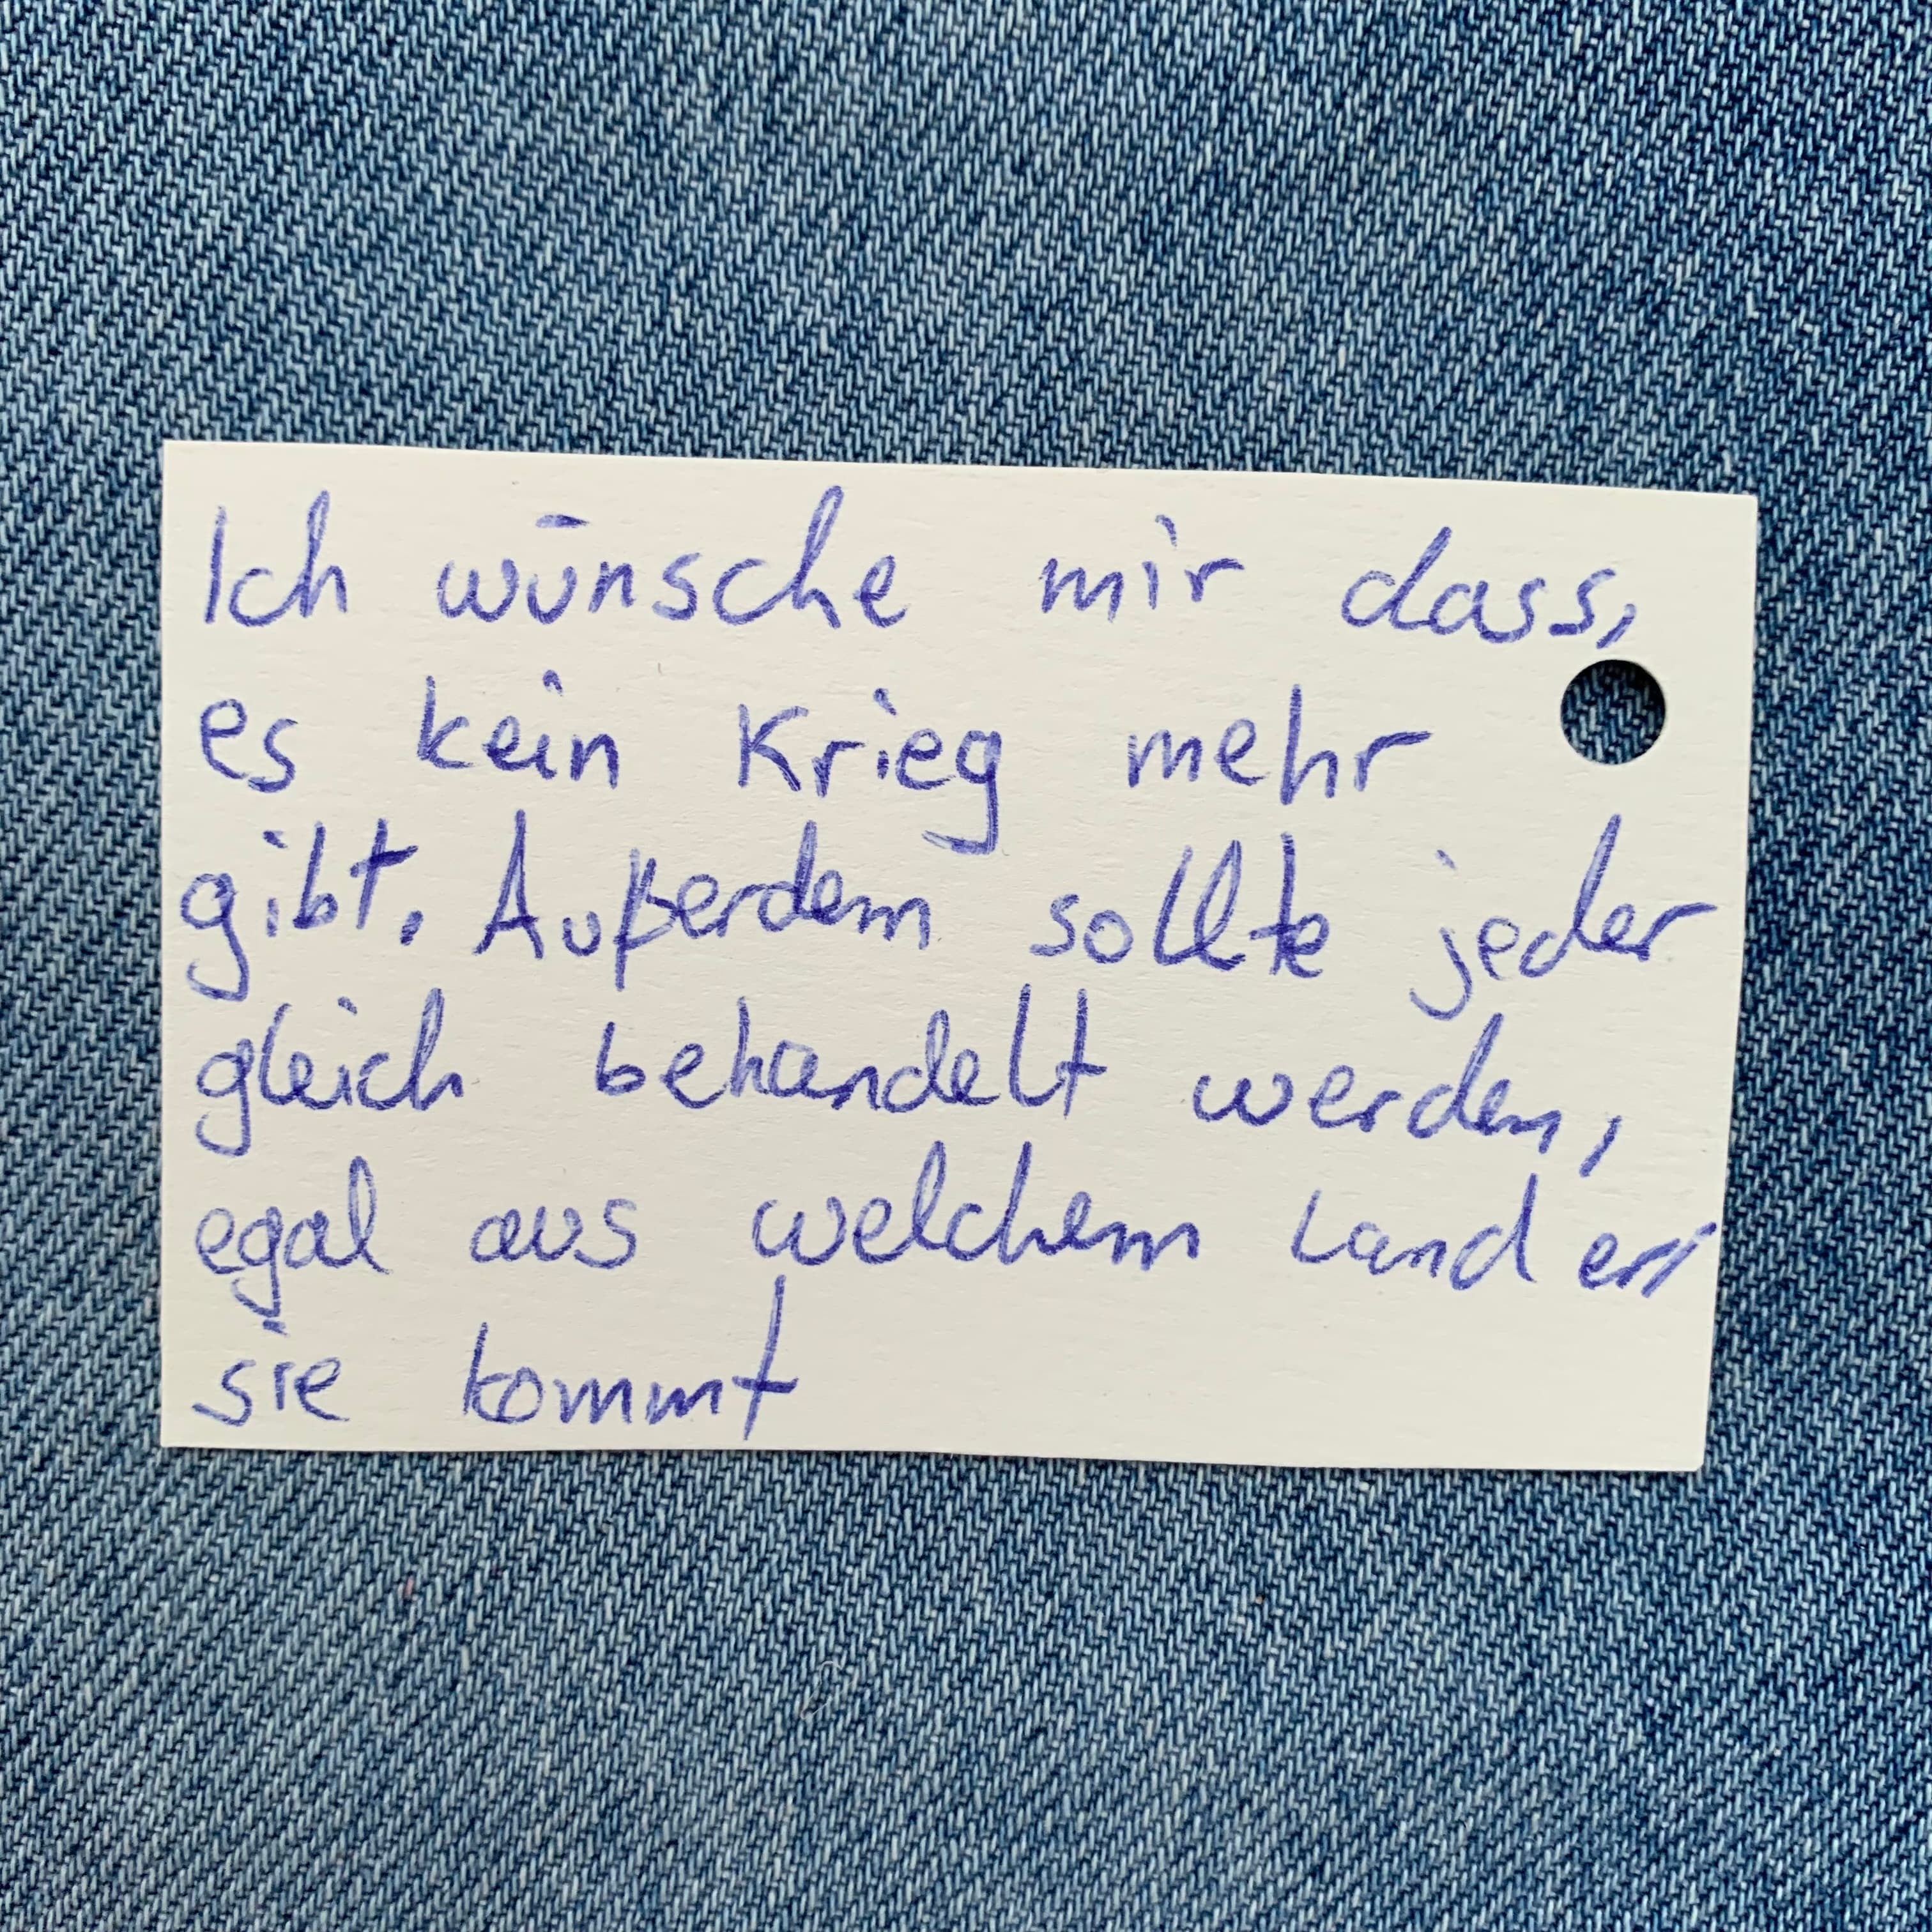 Ich wünsche mir dass,
es kein Krieg mehr
gibt. Außerdem sollte jeder
gleich behandelt werden,
egal aus welchem Land er/
sie kommt